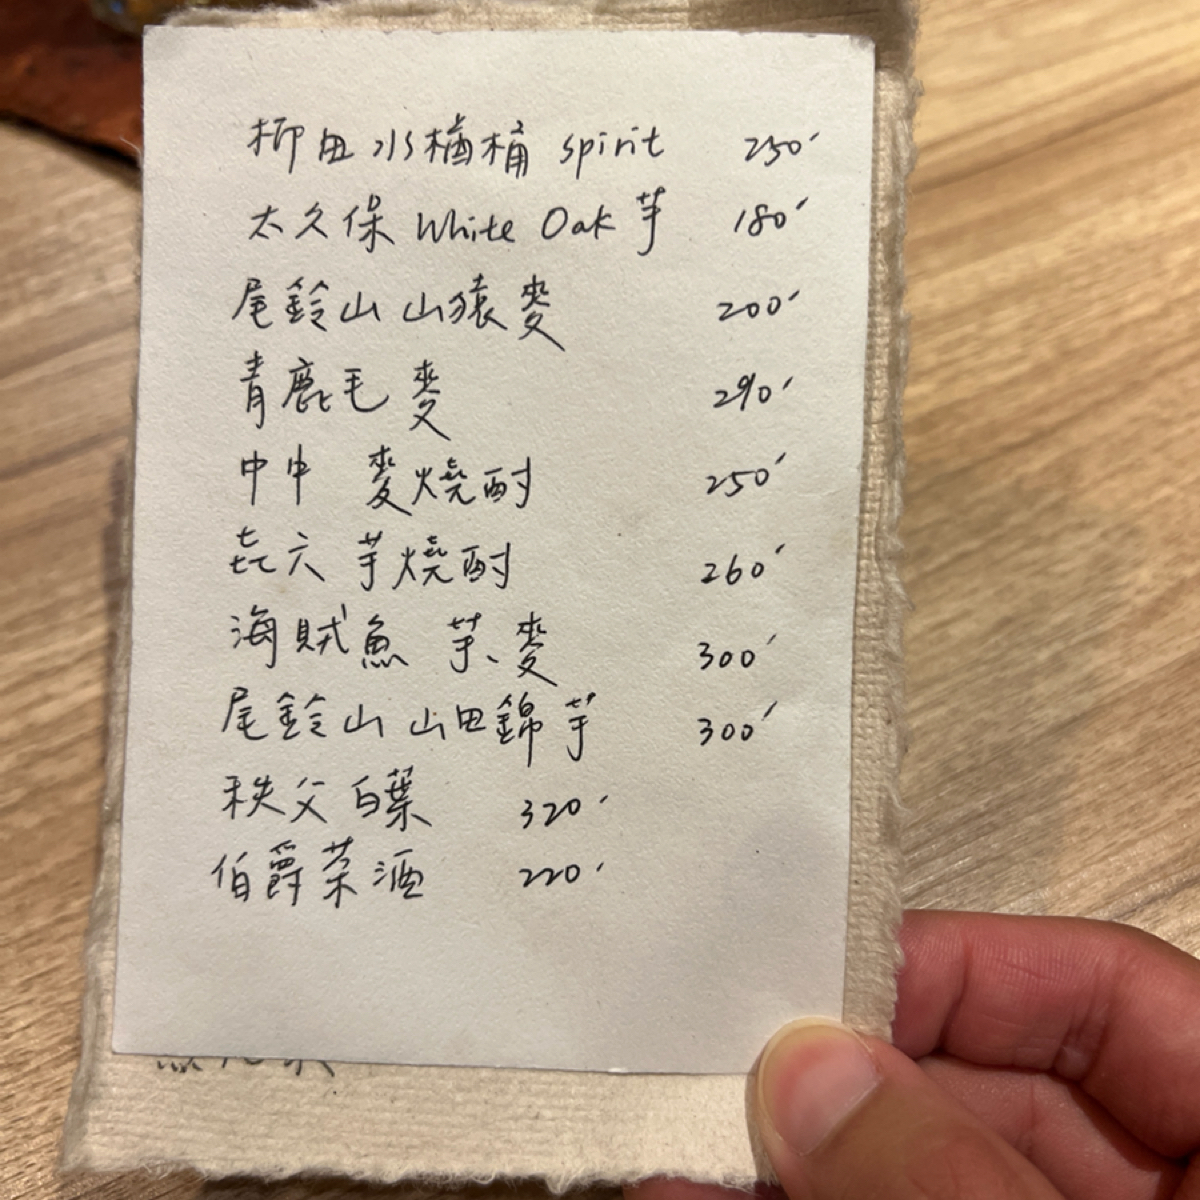 柳田水楢桶 spirit 250'
太久保 White Oak 芋 180'
尾鈴山 山猿 麥 200'
青鹿毛 麥 290'
中中 麥燒酎 250'
㐂六 芋燒酎 260'
海賊魚 芋、麥 300'
尾鈴山 山田錦 芋 300'
秩父白葉 320'
伯爵茶酒 220'